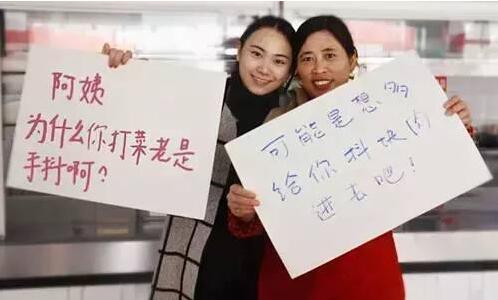 阿姨
为什么你打菜老是
手抖啊？
可能是想多
给你抖块肉
进去吧！